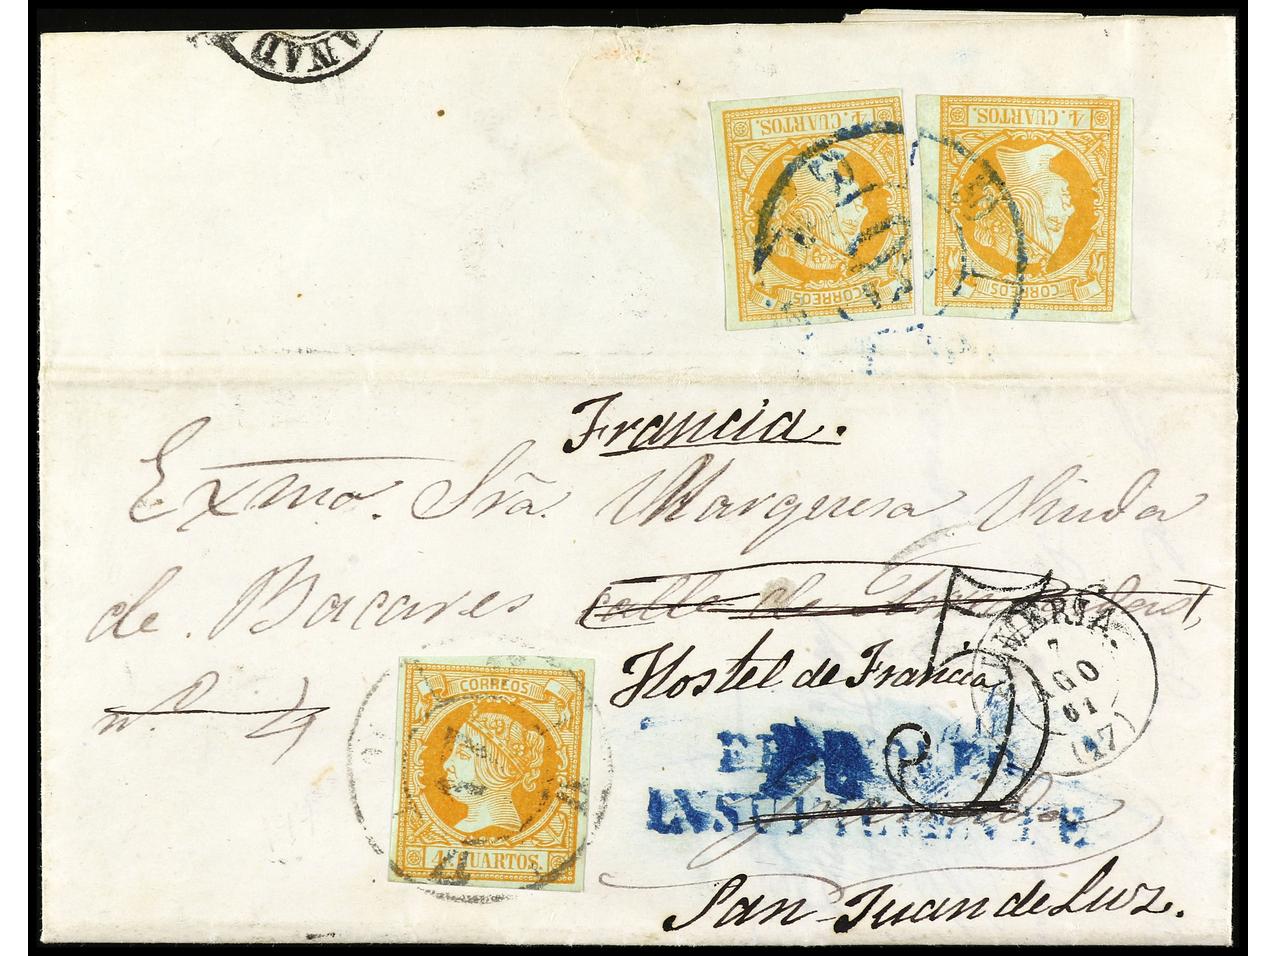 ANAD
4. CUARTOS. 4. CUARTOS.
CORREOS CORREOS
Francia.
Exmo. Sra. Marquesa Viuda
de Bacares calle de
Hostel de Francia
nº 4
CORREOS
4 CUARTOS.
ALMERIA.
7
AGO
61
(17)
5
INSUFICIENTE
Granada
San Juan de Luz.